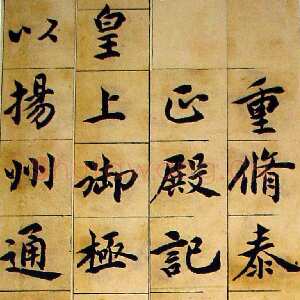 重脩泰
正殿記
皇上御極
以揚州通